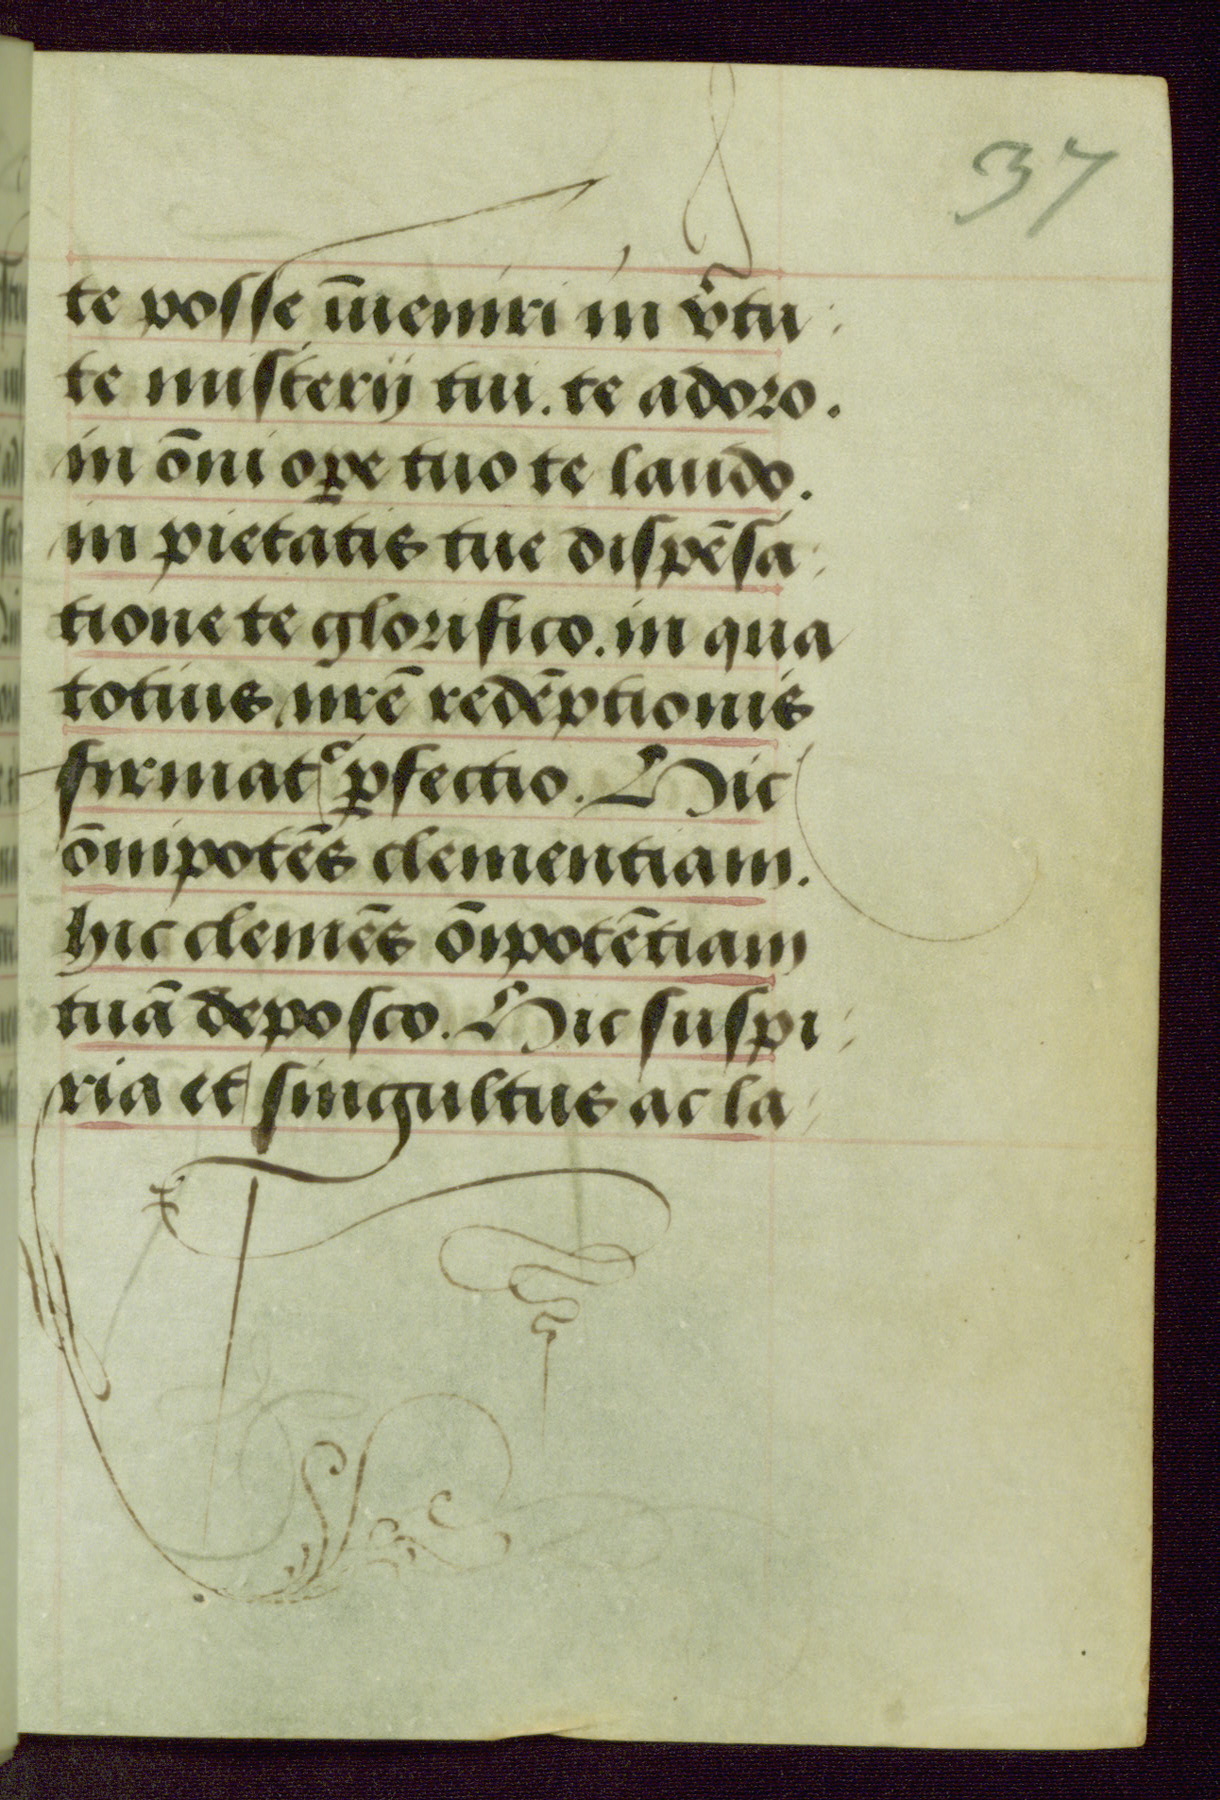 37
te posse īueniri in v̾tu
te misterij tui. te adoro.
in ōni ope tuo te laudo.
in pietatis tue dispēsa
tione te glorifico. in qua
totius nrē redēptionis
firmat᷑ ꝑfectio. Hic
ōnipotēs clementiam.
hic clemēs ōipotētiam
tuā deposco. Hic suspi
ria et singultus ac la